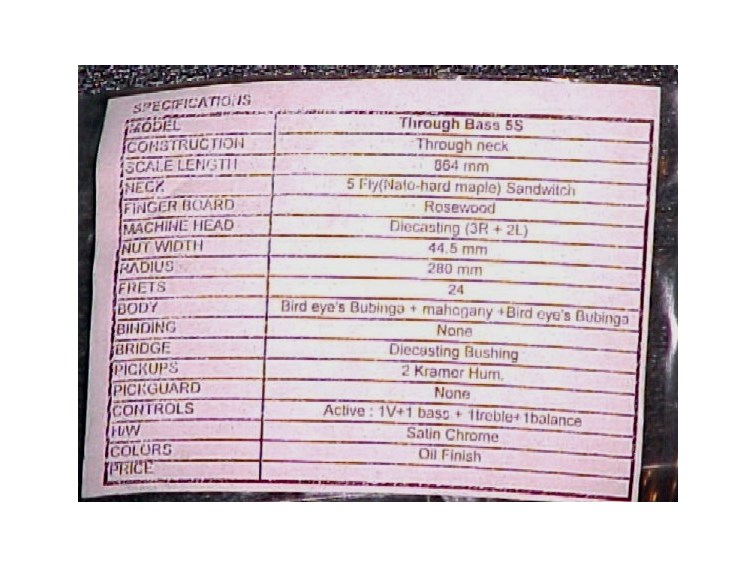 SPECIFICATIONS
MODEL Through Bass 5S
CONSTRUCTION Through neck
SCALE LENGTH 864 mm
NECK 5 Ply(Nato-hard maple) Sandwitch
FINGER BOARD Rosewood
MACHINE HEAD Diecasting (3R + 2L)
NUT WIDTH 44.5 mm
RADIUS 280 mm
FRETS 24
BODY Bird eye's Bubinga + mahogany +Bird eye's Bubinga
BINDING None
BRIDGE Diecasting Bushing
PICKUPS 2 Kramer Hum.
PICKGUARD None
CONTROLS Active : 1V+1 bass + 1treble+1balance
H/W Satin Chrome
COLORS Oil Finish
PRICE